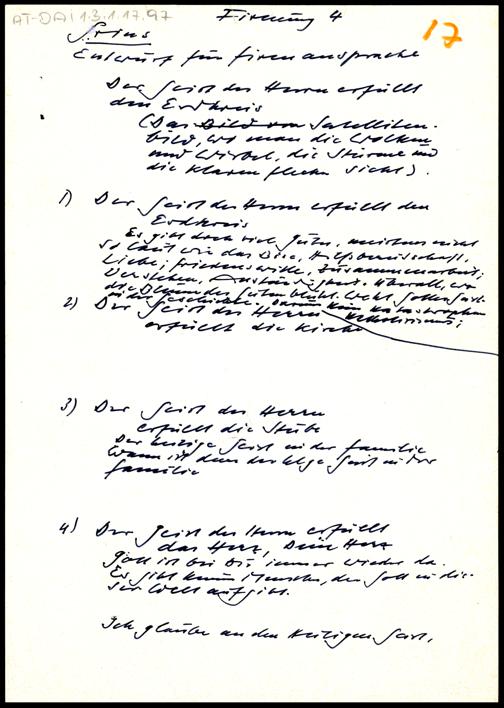 AT-DAI 1.3.1.17.97
Firmung 4
17
Sirius
Entwurf für Firmansprache
Der Geist des Herrn erfüllt
den Erdkreis
(Das Bild von Satelliten-
bild, wo man die Wolken
und Wirbel, die Stürme und
die klaren Flecken sieht).
1) Der Geist des Herrn erfüllt den
Erdkreis
Es gibt doch viel Gutes, meistens nicht
so laut wie das Böse, Hilfsbereitschaft,
Liebe, Friedenswille, Zusammenarbeit,
Verstehen, Anständigkeit. Überall, wo
die Blume des Guten blüht, weht Gottes Geist
in der Geschichte. Darum kein Katastrophen
2) Der Geist des Herrn
erfüllt die Kirche
3) Der Geist des Herrn
erfüllt die Stube
Der heilige Geist in der Familie
Wann ist denn der hlge Geist in der
Familie
4) Der Geist des Herrn erfüllt
das Herz, Dein Herz
Gott ist bei Dir immer wieder da.
Es gibt keinen Menschen, den Gott in die-
ser Welt aufgibt.
Ich glaube an den Heiligen Geist.